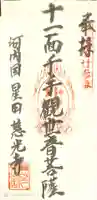 奉様
十一面千手觀世音菩薩
河内国星田慈光寺